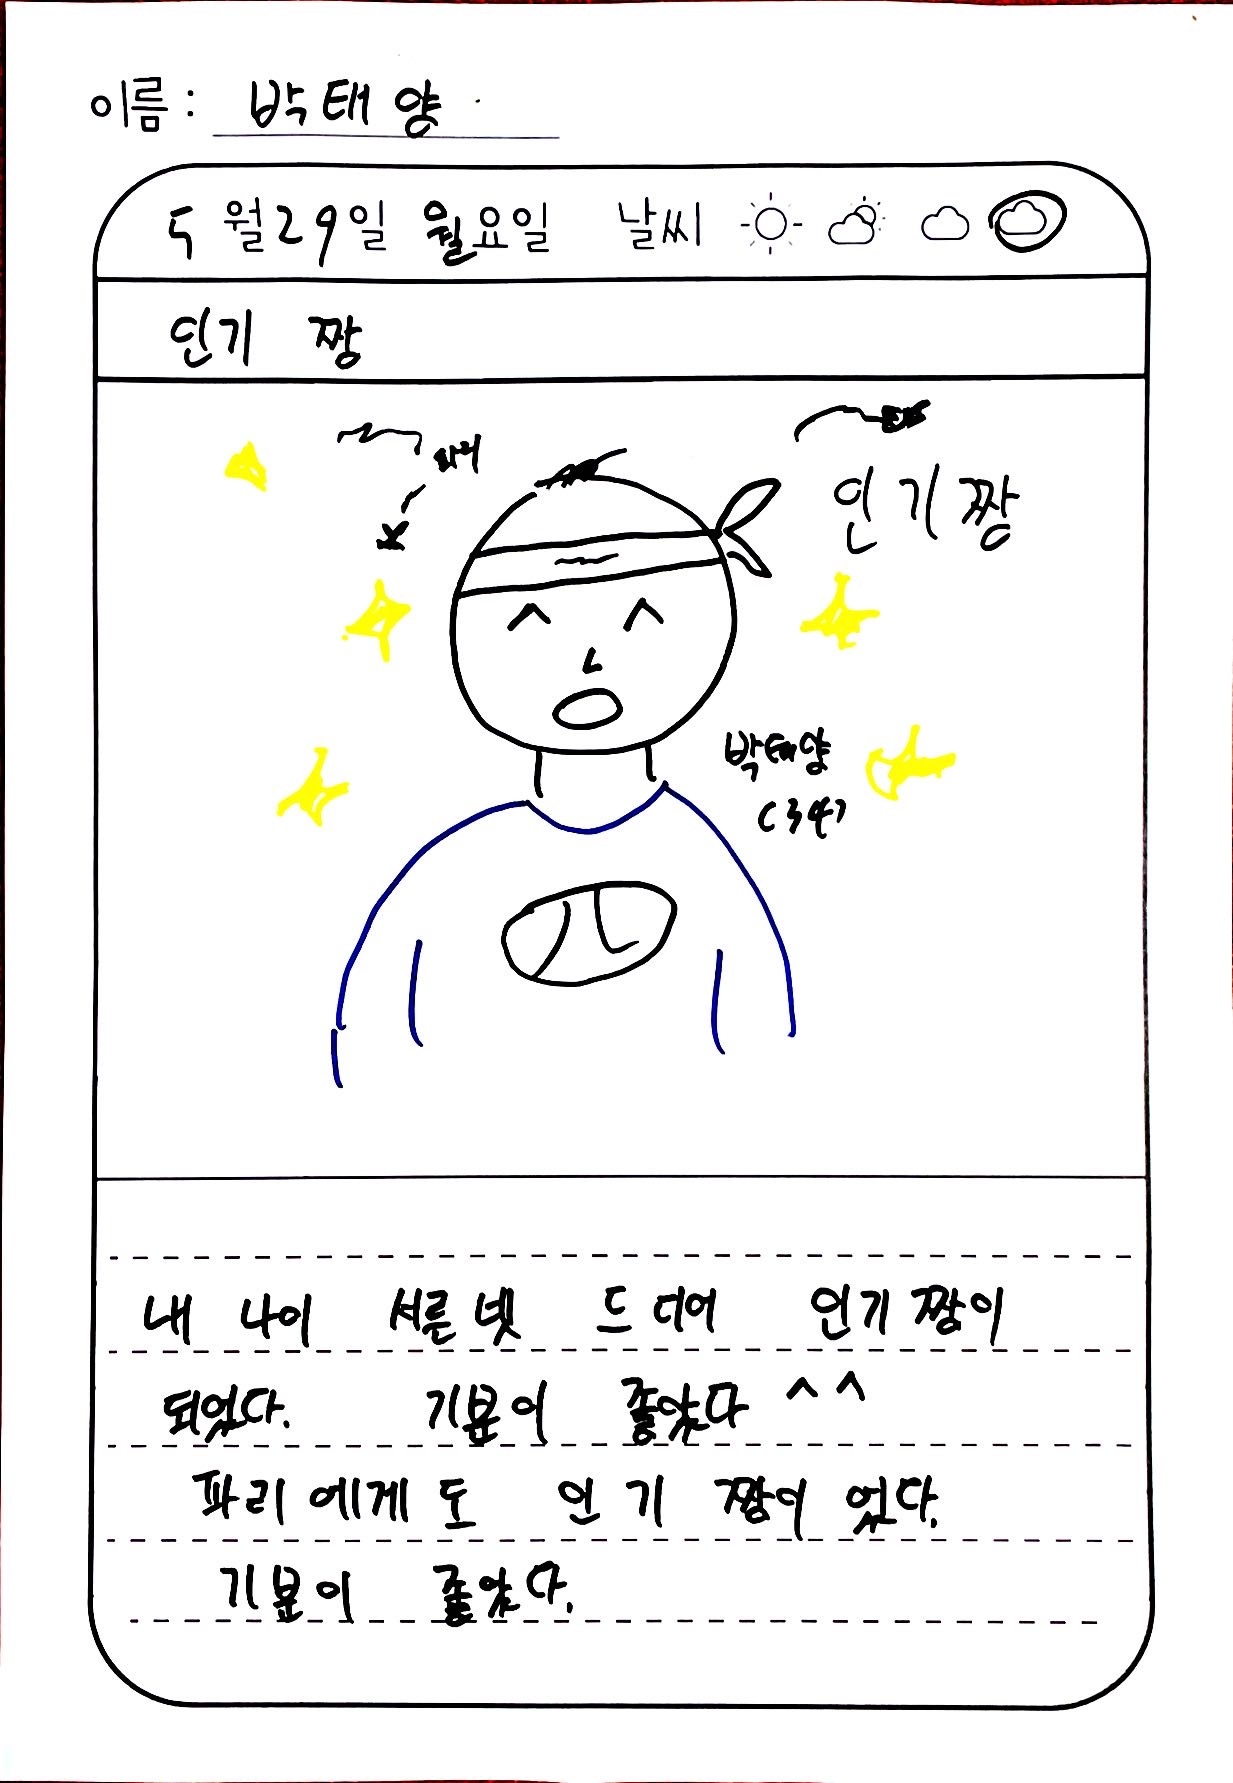 이름 : 박태양
5월 29일 월요일 날씨
인기 짱
파리
인기짱
박태양
(34)
내 나이 서른넷 드디어 인기짱이
되었다. 기분이 좋았다 ^^
파리에게도 인기 짱이었다.
기분이 좋았다.